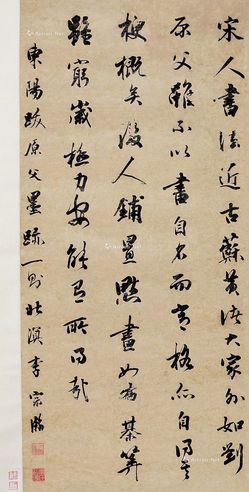 宋人書法近古蘇黃諸大家外如劉
原父雖不以書自名而骨格亦自得其
梗概矣後人鋪置點畫如布棊筭
雖窮歲極力安能有所得哉
東陽跋原父墨跡一則 北溟李宗瀚